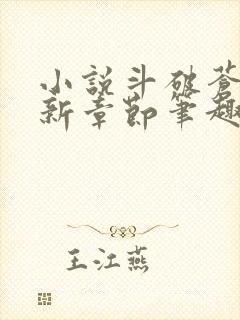 小説斗破蒼
新章節筆趣
王江燕